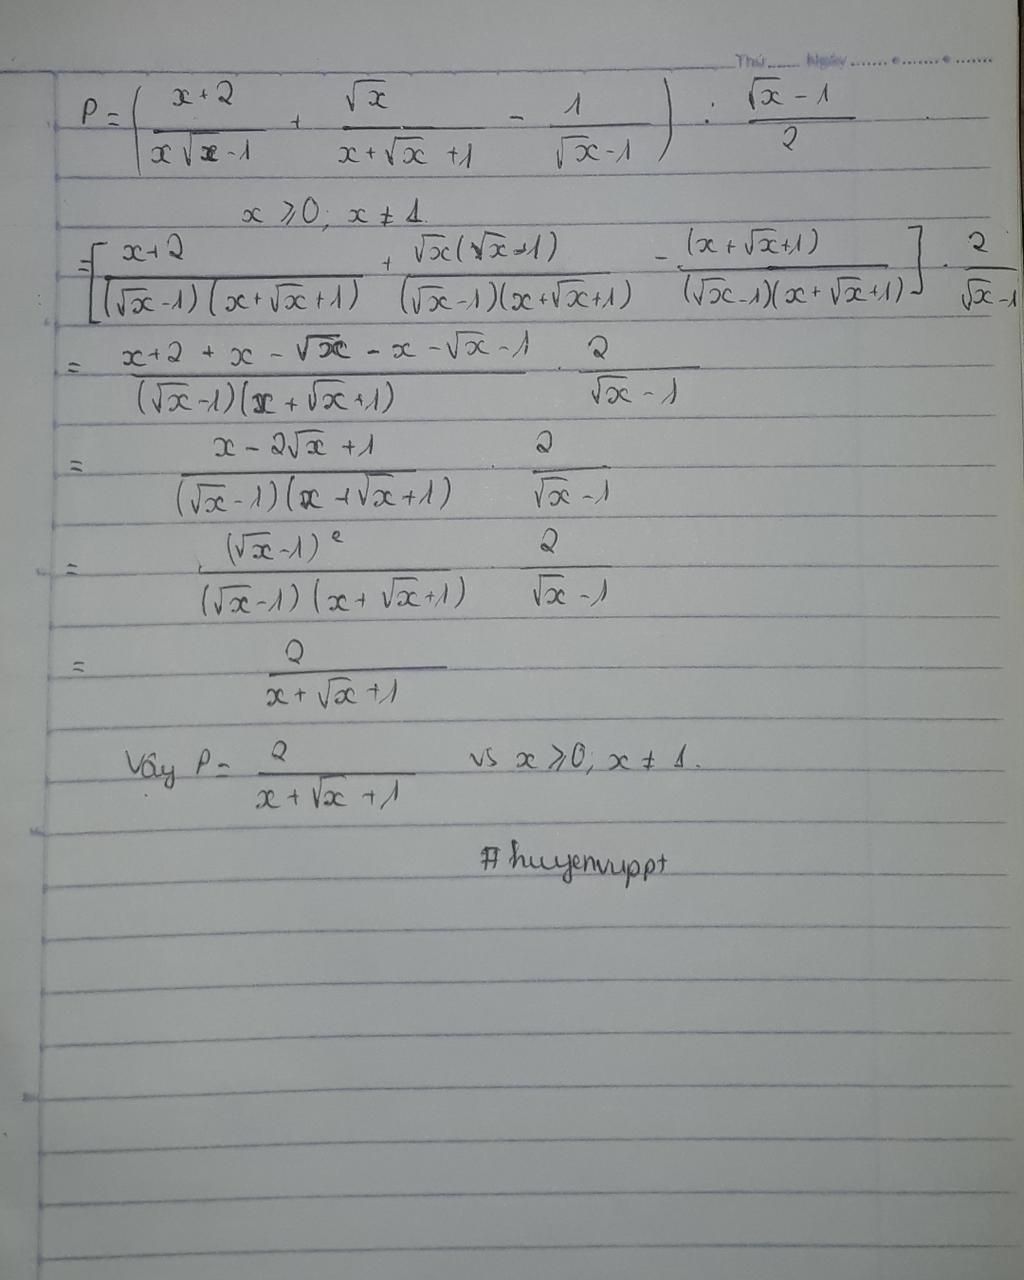 Thứ...... Ngày .......•.......•.......
P = ( (x+2)/(x√x-1) + √x/(x+√x+1) - 1/(√x-1) ) : (√x-1)/2
x ≥ 0; x ≠ 1.
= [ (x+2)/((√x-1)(x+√x+1)) + √x(√x-1)/((√x-1)(x+√x+1)) - (x+√x+1)/((√x-1)(x+√x+1)) ] . 2/(√x-1)
= (x+2+x-√x-x-√x-1)/((√x-1)(x+√x+1)) . 2/(√x-1)
= (x-2√x+1)/((√x-1)(x+√x+1)) . 2/(√x-1)
= (√x-1)²/((√x-1)(x+√x+1)) . 2/(√x-1)
= 2/(x+√x+1)
Vây P = 2/(x+√x+1) vs x ≥ 0; x ≠ 1.
#huyenvuppt